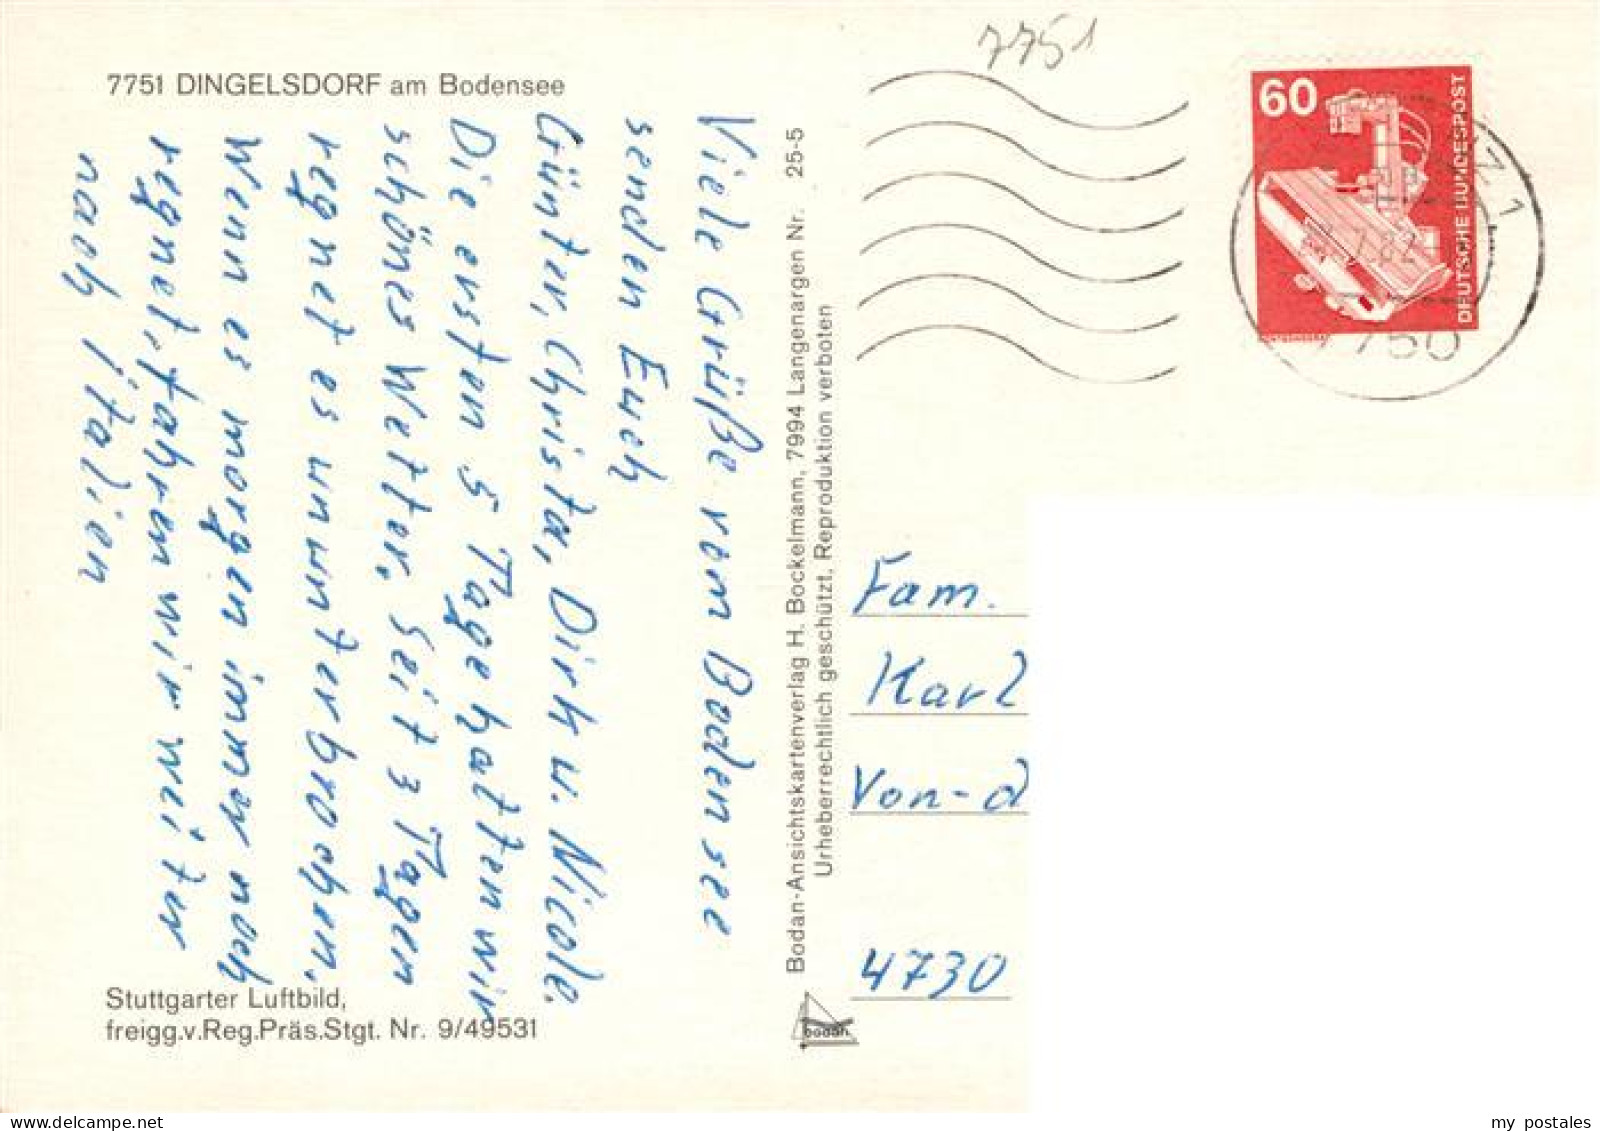 7751 DINGELSDORF am Bodensee
Viele Grüße vom Bodensee
senden Euch
Günter, Christa, Dirk u. Nicole.
Die ersten 5 Tage hatten wir
schönes Wetter. Seit 3 Tagen
regnet es ununterbrochen.
Wenn es morgen immer noch
regnet, fahren wir weiter
nach Italien
Stuttgarter Luftbild,
freigg.v.Reg.Präs.Stgt. Nr. 9/49531
Bodan-Ansichtskartenverlag H. Bockelmann, 7994 Langenargen Nr. 25-5
Urheberrechtlich geschützt, Reproduktion verboten
bodan
7751
60
DEUTSCHE BUNDESPOST
7750
Fam.
Karl
Von-d
4730
my postales